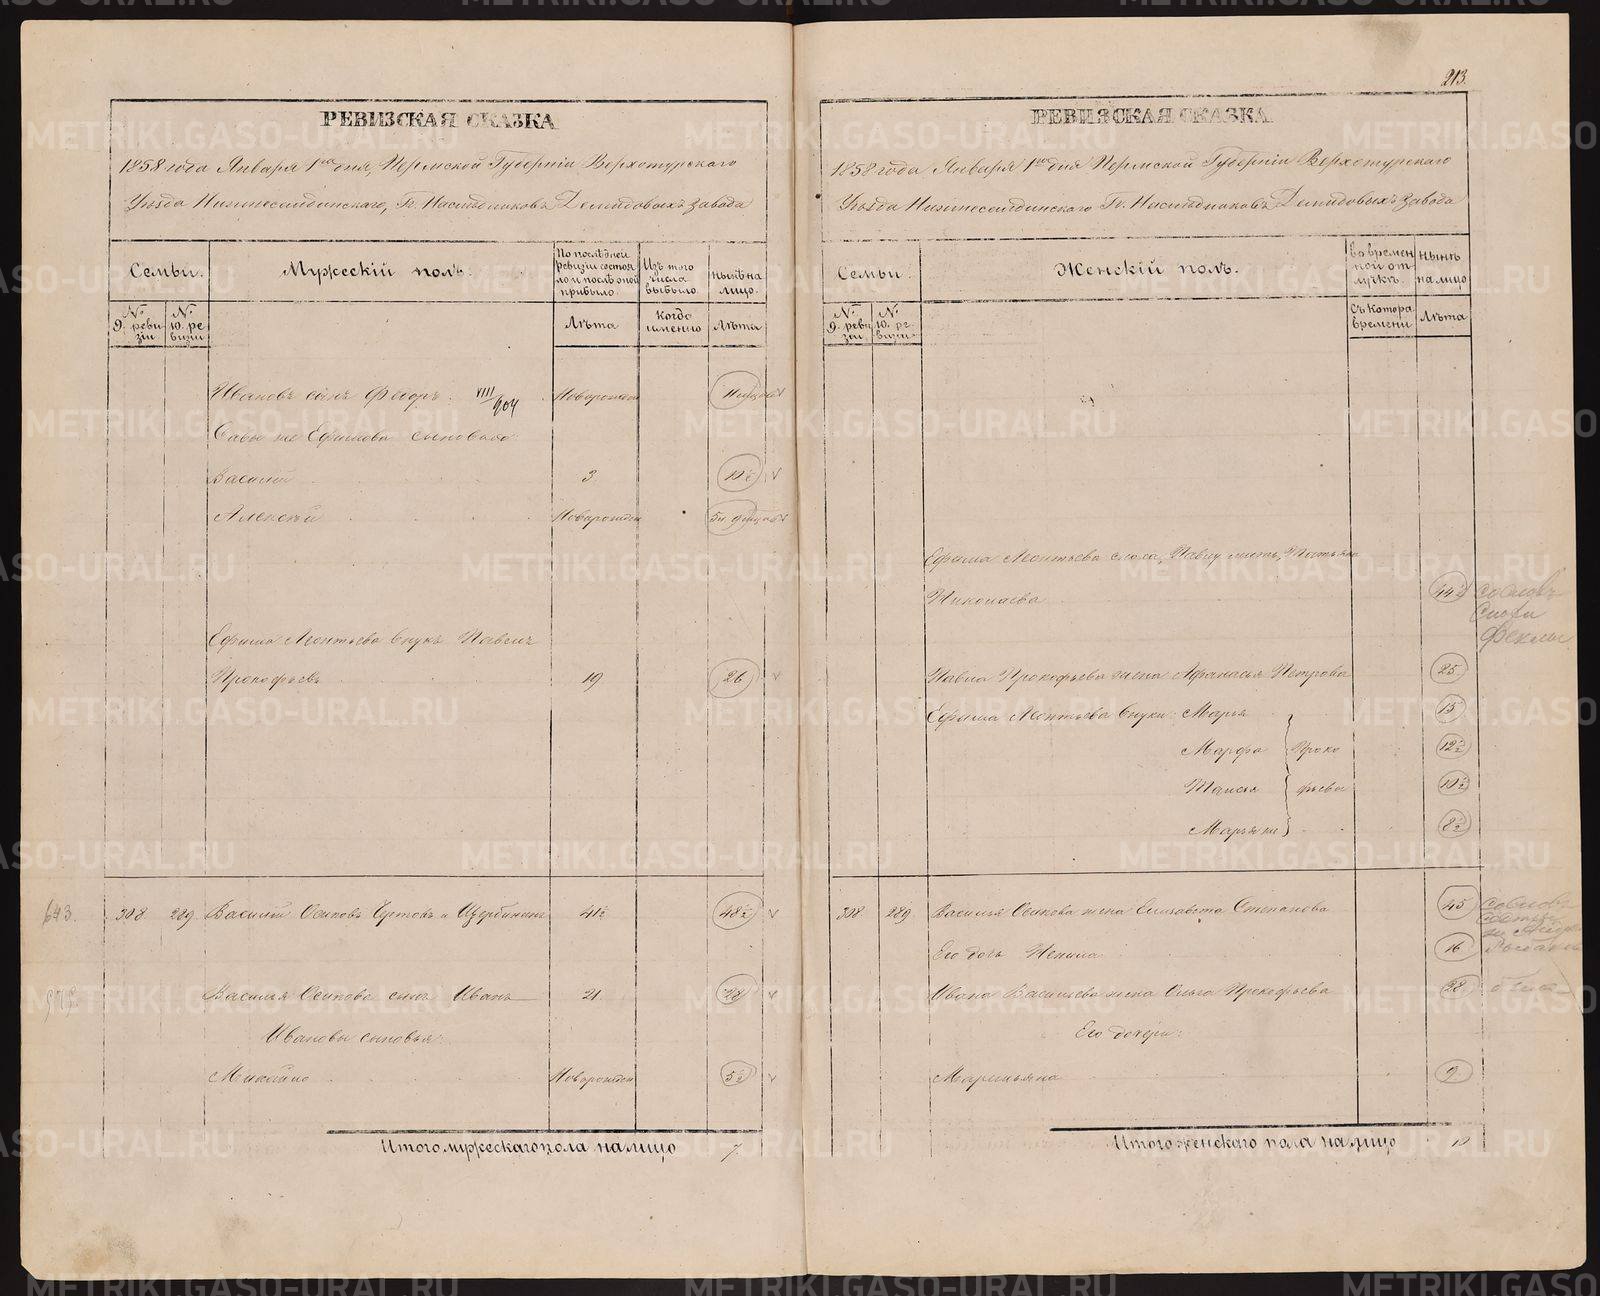 213.
РЕВИЗСКАЯ СКАЗКА
1858 года Января 1го дня, Пермской Губерніи Верхотурскаго
Уѣзда Нижнесалдинскаго, Гг. Наслѣдниковъ Демидовыхъ завода
Семьи.
Мужескій полъ.
По послѣдней ревизіи состояло и послѣ оной прибыло.
Изъ того числа выбыло.
нынѣ на лицо.
№ 9. ревизіи
№ 10. ревизіи
Лѣта
Когда именно
Лѣта
Ивановъ сынъ Федоръ. VIII/904 Новорожден
Савы же Ефимова сыновья
Василій 3 10½
Алексѣй Новорожден
Ефима Леонтьева внукъ Павелъ
Прокофьевъ 19 26
643. 308 289 Василій Осиповъ Чертовъ и Щербининъ 41½ 48½
Василья Осипова сынъ Иванъ 21 28
Ивановы сыновья:
Михайло Новорожден 5½
Итого мужескаго пола на лицо 7
РЕВИЗСКАЯ СКАЗКА
1858 года Января 1го дня Пермской Губерніи Верхотурскаго
Уѣзда Нижнесалдинскаго Гг. Наслѣдниковъ Демидовыхъ завода
Семьи.
Женскій полъ.
Во временной отлучкѣ.
нынѣ на лицо
№ 9. ревизіи
№ 10. ревизіи
Съ котора времени
Лѣта
Ефима Леонтьева сноха, Павлу мать,
Николаева 44½
Павла Прокофьева жена Афанасья Петрова 25
Ефима Леонтьева внуки: Марья 15
Марфа Проко 12½
Таисья фьева 10½
Марья же 8½
308 289 Василья Осипова жена Елизавета Степанова 45
Его дочь Ненила 16
Ивана Васильева жена Ольга Прокофьева 28
Его дочери:
Марильяна 9
Итого женскаго пола на лицо 10
METRIKI.GASO-URAL.RU